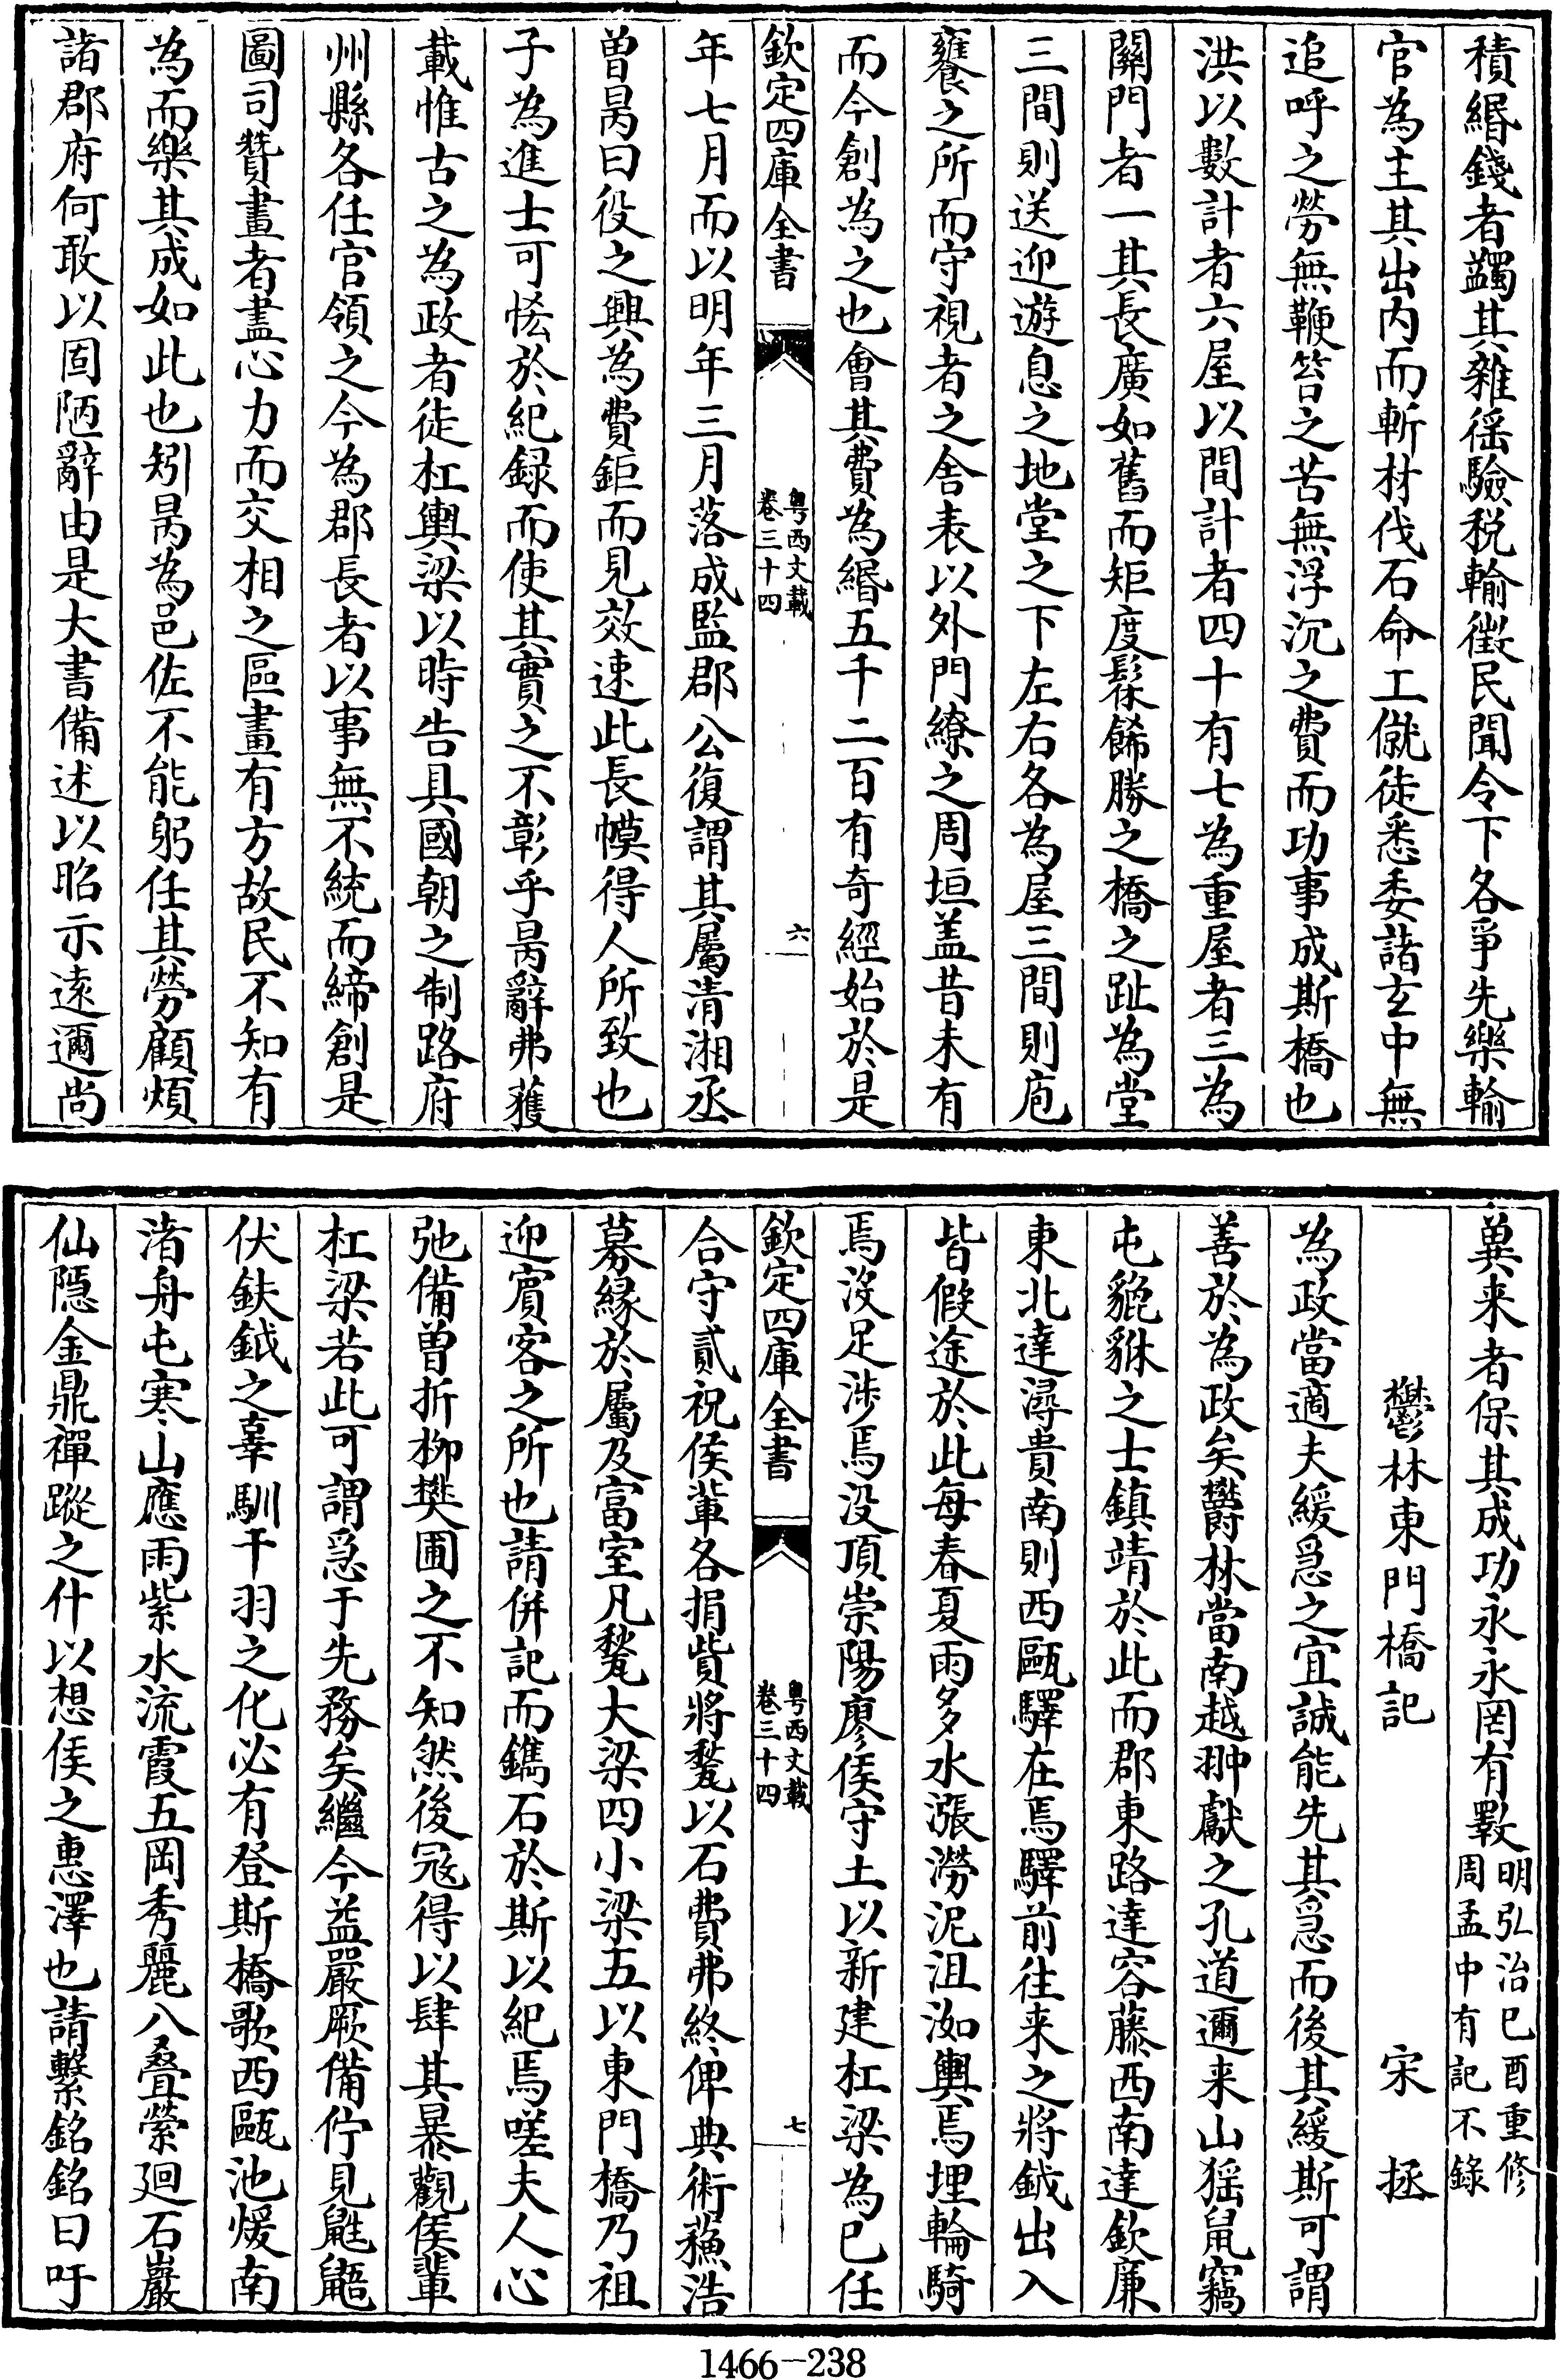 積緡錢者蠲其雜徭驗税輸徴民聞令下各爭先樂輸
官為主其出内而斬材伐石命工僦徒悉委諸玄中無
追呼之勞無鞭笞之苦無浮沉之費而功事成斯橋也
洪以數計者六屋以間計者四十有七為重屋者三為
關門者一其長廣如舊而矩度髹餙勝之橋之趾為堂
三間則送迎遊息之地堂之下左右各為屋三間則庖
饔之所而守視者之舍表以外門繚之周垣盖昔未有
而今創為之也會其費為緡五千二百有奇經始於是
欽定四庫全書
粤西文載
卷三十四
六
年七月而以明年三月落成監郡公復謂其屬清湘丞
曽昺曰役之興為費鉅而見效速此長幙得人所致也
子為進士可恡於紀録而使其實之不彰乎昺辭弗獲
載惟古之為政者徒杠輿梁以時告具國朝之制路府
州縣各任官領之今為郡長者以事無不統而締創是
圖司贊畫者盡心力而交相之區畫有方故民不知有
為而樂其成如此也矧昺為邑佐不能躬任其勞顧煩
諸郡府何敢以固陋辭由是大書備述以昭示逺邇尚
兾来者保其成功永永罔有斁
明弘治己酉重修
周孟中有記不錄
鬱林東門橋記
宋 拯
為政當適夫緩急之宜誠能先其急而後其緩斯可謂
善於為政矣欝林當南越翀獻之孔道邇来山猺鼠竊
屯貔貅之士鎮靖於此而郡東路達容藤西南達欽廉
東北達潯貴南則西甌驛在焉驛前往来之將鉞出入
皆假途於此每春夏雨多水漲澇泥沮洳輿焉埋輪騎
焉沒足涉焉没頂崇陽廖侯守土以新建杠梁為已任
欽定四庫全書
粤西文載
卷三十四
七
合守貳祝侯輩各捐貲將甃以石費弗終俾典術蘓浩
募緣於屬及富室凡甃大梁四小梁五以東門橋乃祖
迎賓客之所也請併記而鐫石於斯以紀焉嗟夫人心
弛備曽折栁樊圃之不知然後冦得以肆其暴觀侯輩
杠梁若此可謂急于先務矣繼今益嚴厥備佇見鼪鼯
伏鈇鉞之辜馴干羽之化必有登斯橋歌西甌池煖南
渚舟屯寒山應雨紫水流霞五岡秀麗八叠縈廻石巖
仙隱金鼎禪蹤之什以想侯之惠澤也請繫銘銘曰吁
1466-238